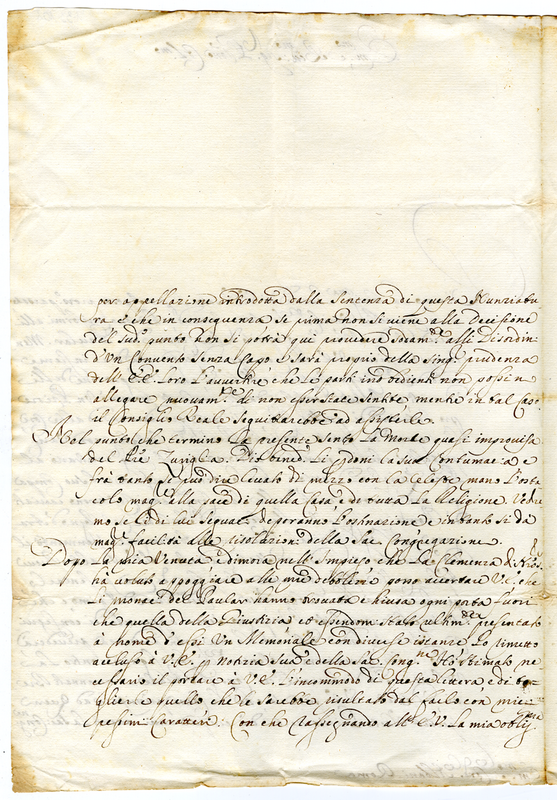 per appellazione introdotta dalla Sentenza di questa Nunziatu
ra e che in conseguenza se prima non si viene alla Decisione
del sud.º punto non si potrà qui provedere alli Disordini
d'un Convento senza Capo e sarà proprio della prudenza
dell' EE. Loro l'auvertire che le parti non possin
allegare nuovam.te di non esser state sentite mentre in tal caso
il Consiglio Reale seguitarebbe ad assisterle.
Nel punto che termino la presente sento la Morte quasi improvisa
del Pre Zuniglia: Dio bened.º li perdoni la sua Contumacia e
fra tanto se può dire levato di mezzo con la Celeste mano l'osta
colo mag.e alla pace di quella Casa, e di tutta la Religione. Vedre
mo se li di lui seguaci deporanno l'ostinazione e intanto si da
mag.r facilità alle risoluzioni della Sac. Congregazione.
Dopo la mia Venuta, e dimora nell' Impiego che la Clemenza di
ha voluto appoggiare alle mie debolezze posso accertare V.E. che
li monaci del Paular hanno trovata chiusa ogni porta fuori
che quella della Giustizia et essendomi stato presentato
à nome d'essi un Memoriale con diverse istanze lo rimetto
accluso à V.E. per notizia sua e della Sac. Cong.ne Hò stimato ne
cessario il portare à V.E. l'incommodo di questa lettera e di to
glierle quello che le sarebbe risultato dal farlo con miei
pessimi Caratteri: Con che rassegnando all' E.V. la mia oblig.ma